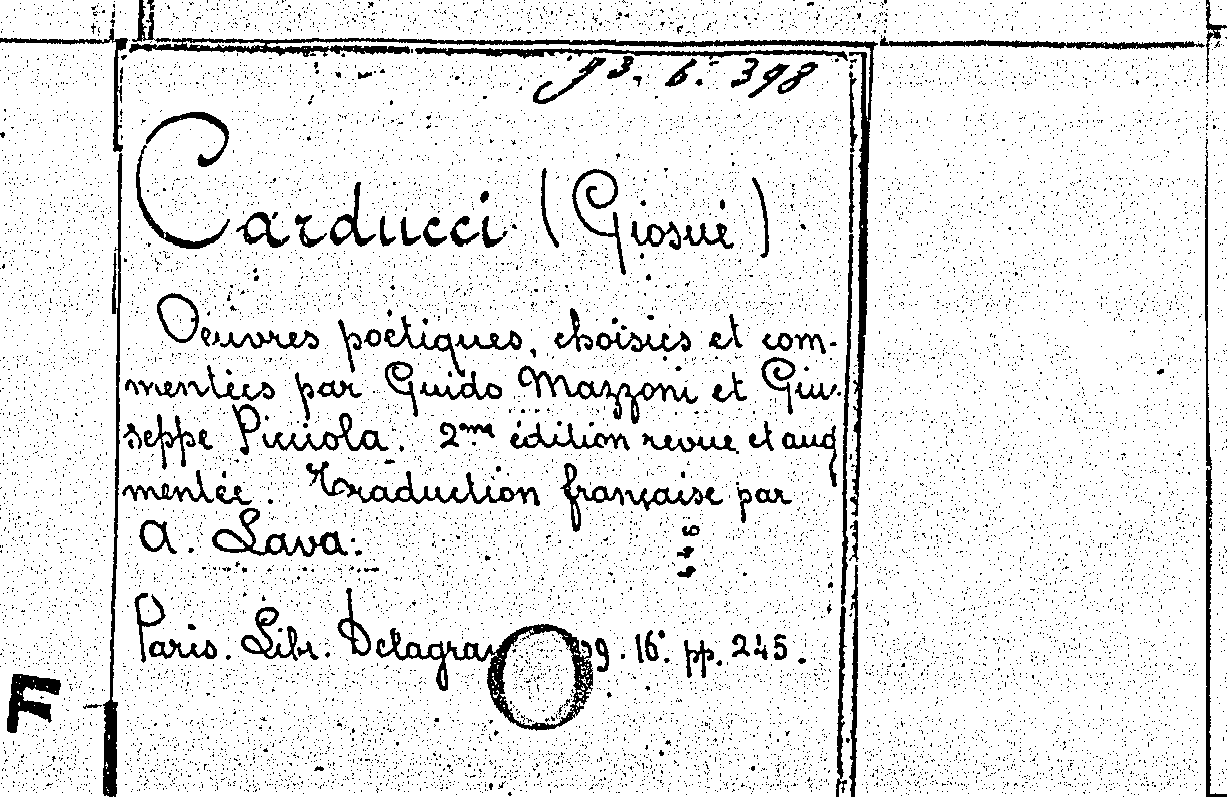 93. 6. 398
Carducci (Giosuè)
Oeuvres poëtiques, choisies et com-
mentées par Guido Mazzoni et Giu-
seppe Picciola. 2me édition revue et aug
mentée. Traduction française par
A. Lava.
Paris. Libr. 16°. pp. 245.
F